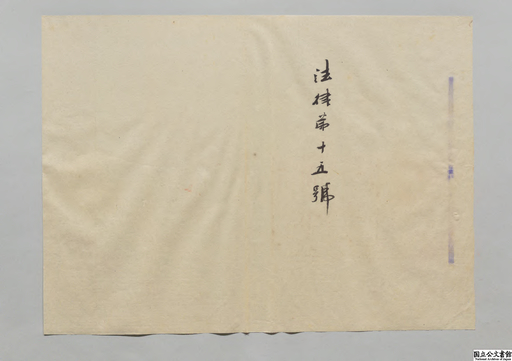 法律第十五號
国立公文書館
National Archives of Japan